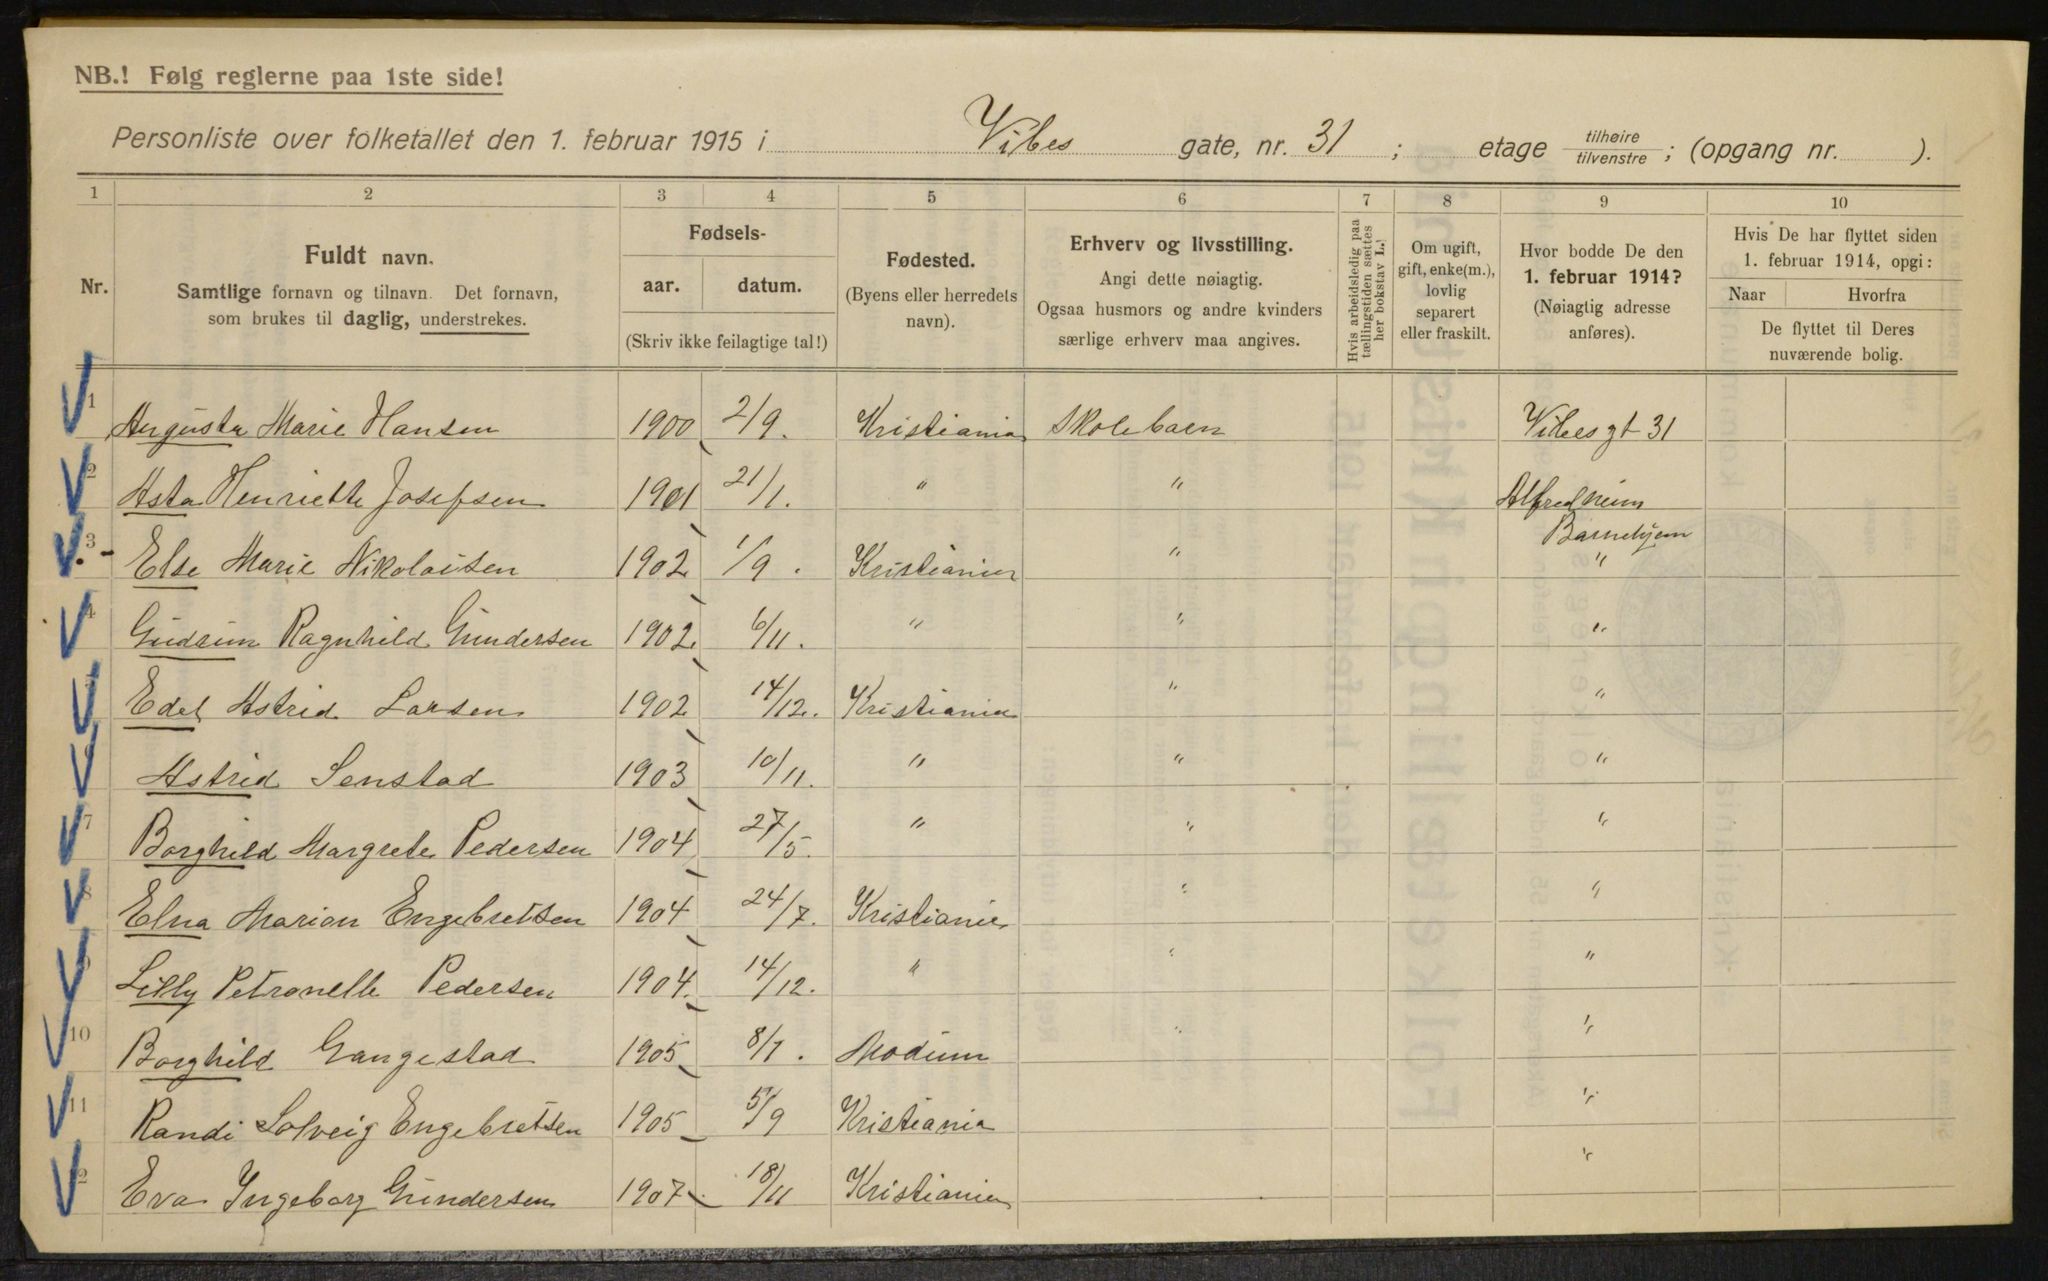 NB.! Følg reglerne paa 1ste side!
Personliste over folketallet den 1. februar 1915 i Vibes gate, nr. 31 ; etage tilhøire / tilvenstre ; (opgang nr. ).
1 2 3 4 5 6 7 8 9 10
Nr.
Fuldt navn.
Samtlige fornavn og tilnavn. Det fornavn,
som brukes til daglig, understrekes.
Fødsels-
aar. datum.
(Skriv ikke feilagtige tal!)
Fødested.
(Byens eller herredets
navn).
Erhverv og livsstilling.
Angi dette nøiagtig.
Ogsaa husmors og andre kvinders
særlige erhverv maa angives.
Hvis arbeidsledig paa
tællingstiden sættes
her bokstav L.)
Om ugift,
gift, enke(m.),
lovlig
separert
eller fraskilt.
Hvor bodde De den
1. februar 1914?
(Nøiagtig adresse
anføres).
Hvis De har flyttet siden
1. februar 1914, opgi:
Naar Hvorfra
De flyttet til Deres
nuværende bolig.
1 Augusta Marie Hansen 1900 2/9. Kristiania Skolebarn Vibesgt 31
2 Asta Henriette Josefsen 1901 21/1. " " Alfredheim
Barnehjem
3 Else Marie Nikolaisen 1902 1/9. Kristiania " "
4 Gudrun Ragnhild Gundersen 1902. 6/11. " " "
5 Edel Astrid Larsen 1902 14/12. Kristiania " "
6 Astrid Senstad 1903 10/11. " " "
7 Borghild Margrete Pedersen 1904 27/5. " " "
8 Elna Marion Engebretsen 1904 24/7. Kristiania " "
9 Lilly Petronelle Pedersen 1904. 14/12. " " "
10 Borghild Gangestad 1905 8/1. Modum " "
11 Randi Solveig Engebretsen 1905 5/9 Kristiania "
12 Eva Ingeborg Gundersen 1907 18/11 Kristiania "